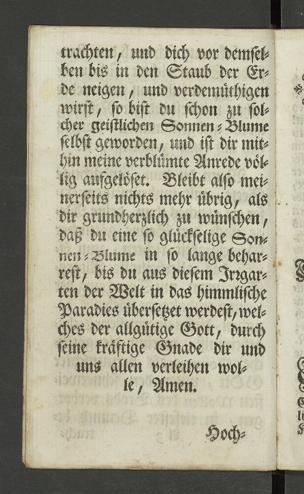 trachten, und dich vor demsel-
ben bis in den Staub der Er-
de neigen, und verdemüthigen
wirst, so bist du schon zu sol-
cher geistlichen Sonnen-Blume
selbst geworden, und ist dir mit-
hin meine verblümte Anrede völ-
lig aufgelöset. Bleibt also mei-
nerseits nichts mehr übrig, als
dir grundherzlich zu wünschen,
daß du eine so glückselige Son-
nen-Blume in so lange behar-
rest, bis du aus diesem Irrgar-
ten der Welt in das himmlische
Paradies übersetzet werdest, wel-
ches der allgütige Gott, durch
seine kräftige Gnade dir und
uns allen verleihen wol-
le, Amen.
Hoch-